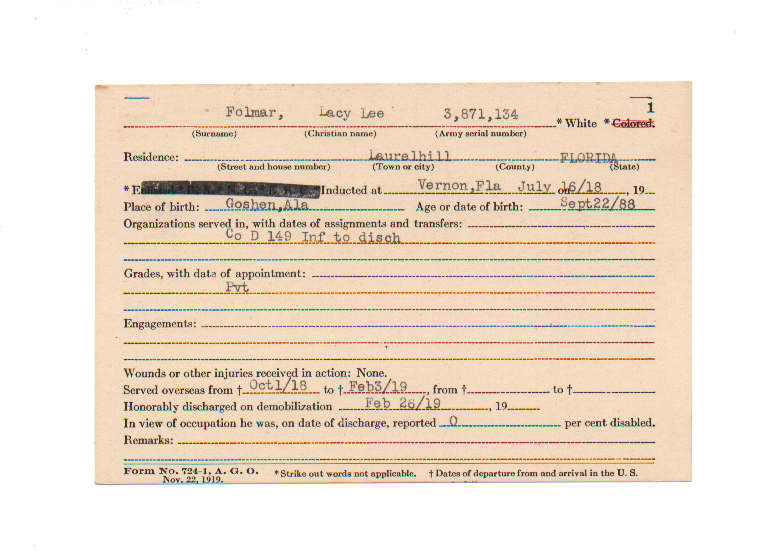 1
Folmar, Lacy Lee 3,871,134 * White * Colored.
(Surname) (Christian name) (Army serial number)
Residence: Laurelhill FLORIDA
(Street and house number) (Town or city) (County) (State)
* Inducted at Vernon,Fla July 16/18 on , 19
Place of birth: Goshen,Ala Age or date of birth: Sept22/88
Organizations served in, with dates of assignments and transfers:
Co D 149 Inf to disch
Grades, with date of appointment:
Pvt
Engagements:
Wounds or other injuries received in action: None.
Served overseas from † Oct1/18 to † Feb3/19 , from † to †
Honorably discharged on demobilization Feb 26/19 , 19
In view of occupation he was, on date of discharge, reported 0 per cent disabled.
Remarks:
Form No. 724-1, A. G. O. * Strike out words not applicable. † Dates of departure from and arrival in the U. S.
Nov. 22, 1919.